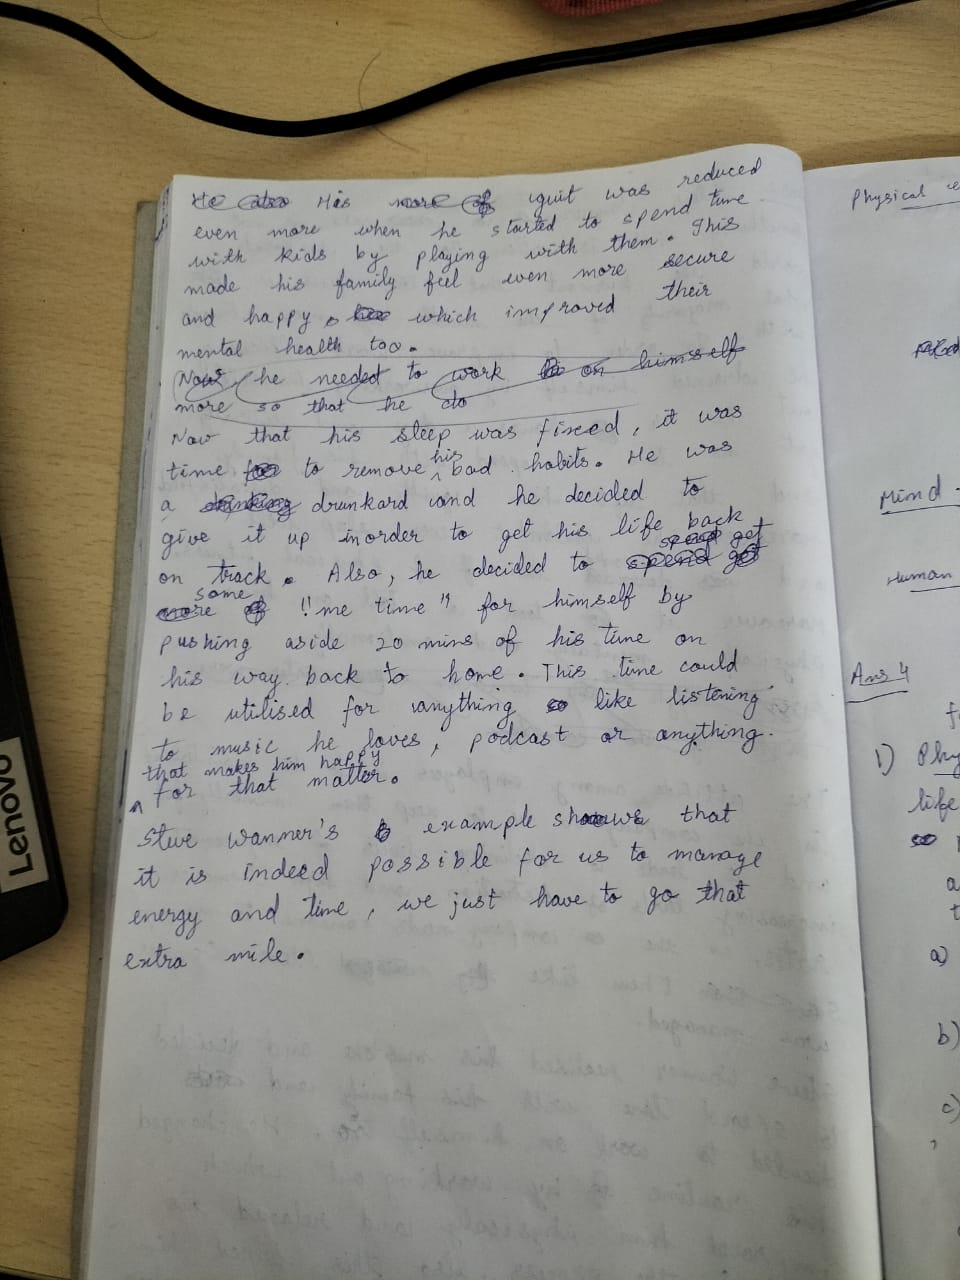 He also His more of iguit was reduced
even more when he started to spend time
with kids by playing with them. This
made his family feel even more secure
and happy, which improved their
mental health too.
Now he needed to work on himself
more so that he do
Now that his sleep was fixed, it was
time for to remove his bad habits. He was
a drinking drunkard and he decided to
give it up inorder to get his life back
on track. Also, he decided to spend get spend get
some more of "me time" for himself by
pushing aside 20 mins of his time on
his way back to home. This time could
be utilised for anything so like listening
to music he loves, podcast or anything.
that makes him happy
for that matter.
Steve Wanner's example shows that
it is indeed possible for us to manage
energy and time, we just have to go that
extra mile.
Physical
Mind -
Human
Ans 4
1) Phy
life
a)
b)
c)
Lenovo